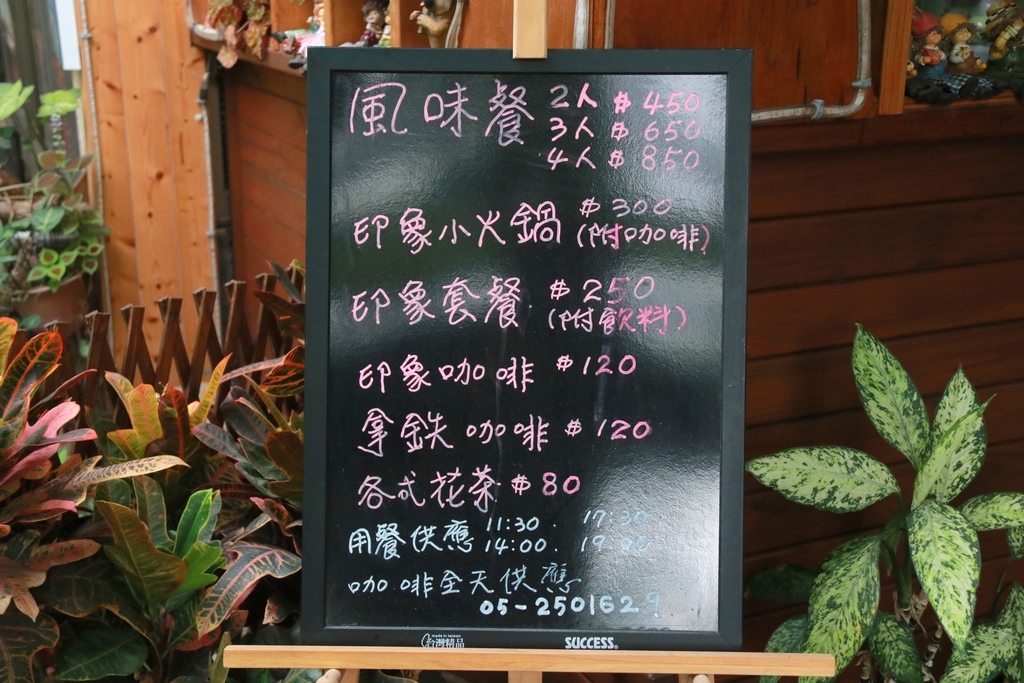 風味餐 2人 $450
3人 $650
4人 $850
印象小火鍋 $300
(附咖啡)
印象套餐 $250
(附飲料)
印象咖啡 $120
拿鉄咖啡 $120
各式花茶 $80
用餐供應 11:30 17:30
14:00 19:00
咖啡全天供應
05-2501629
made in taiwan
台灣精品 SUCCESS